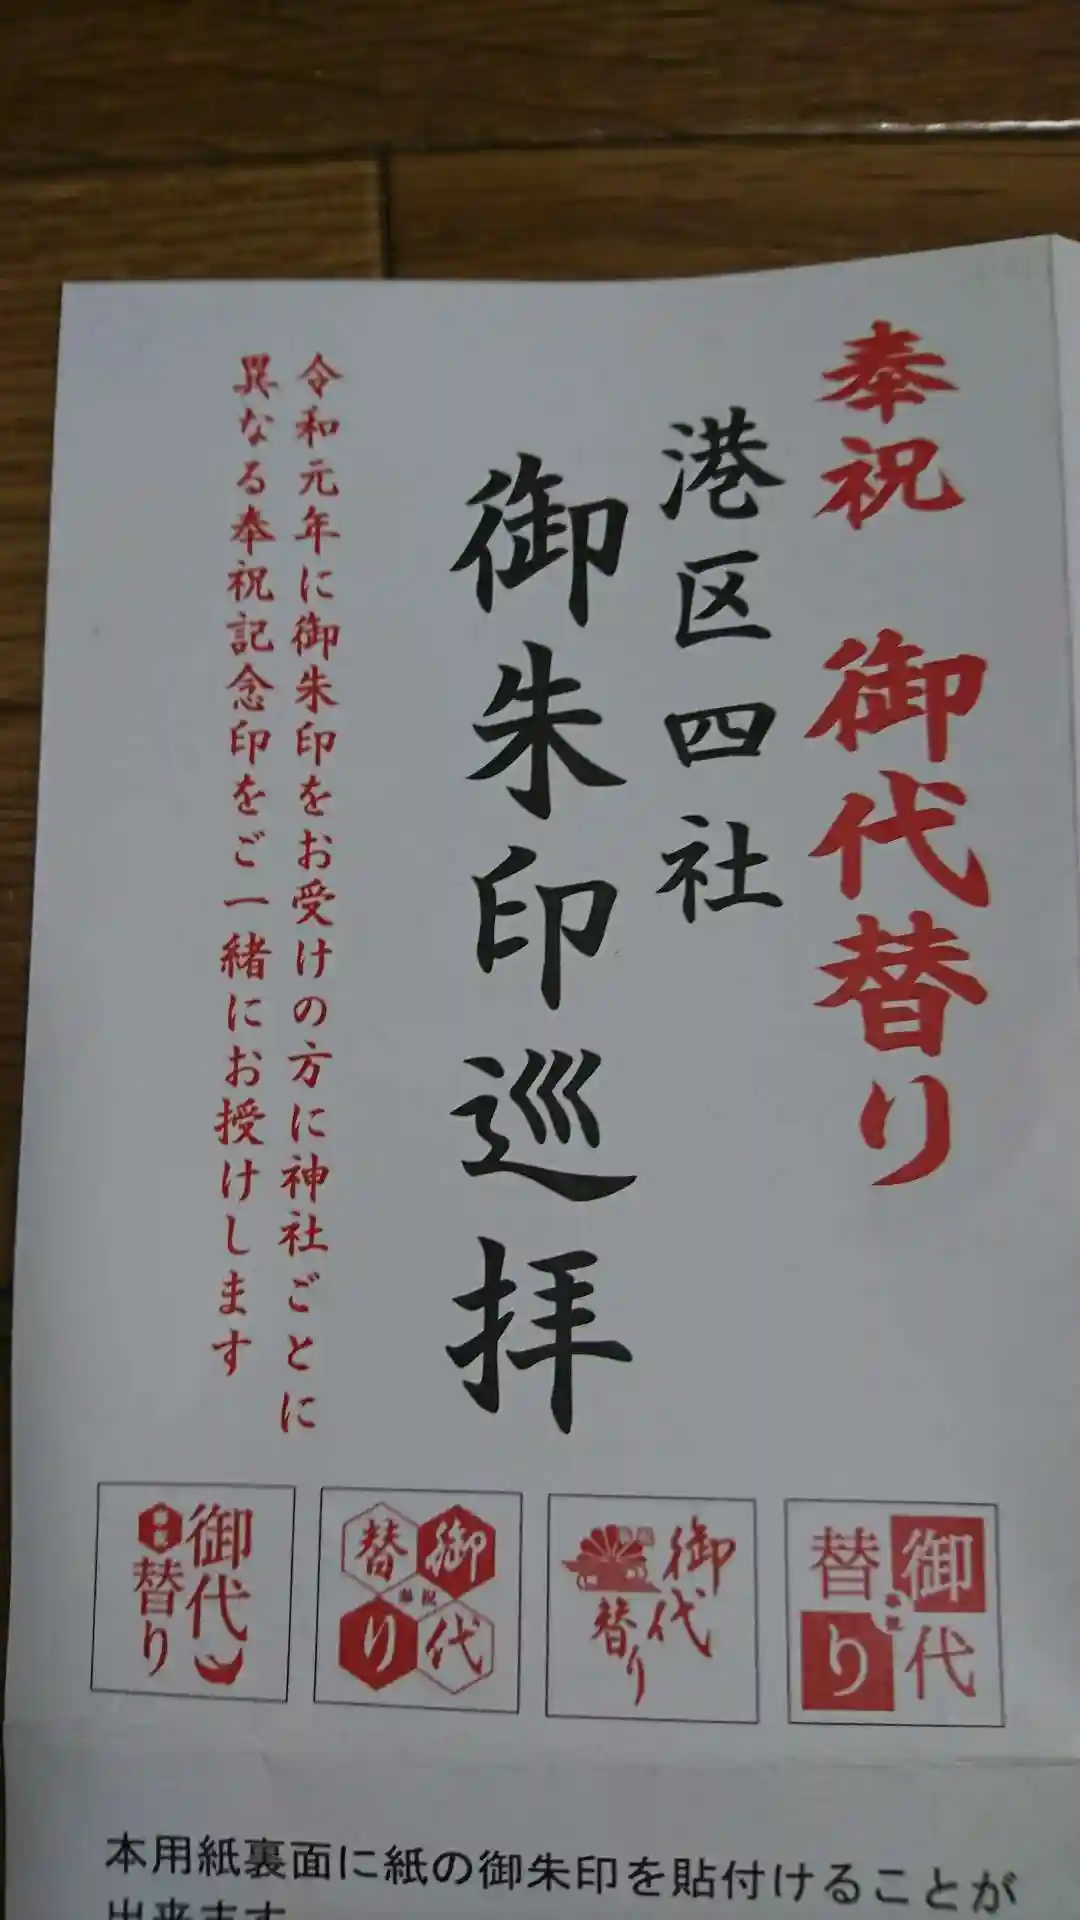 奉祝 御代替り
港区四社
御朱印巡拝
令和元年に御朱印をお受けの方に神社ごとに
異なる奉祝記念印をご一緒にお授けします
御代
替り
奉祝
御代
替り
奉祝
御代
替り
御代
替り
本用紙裏面に紙の御朱印を貼付けることが
出来ます